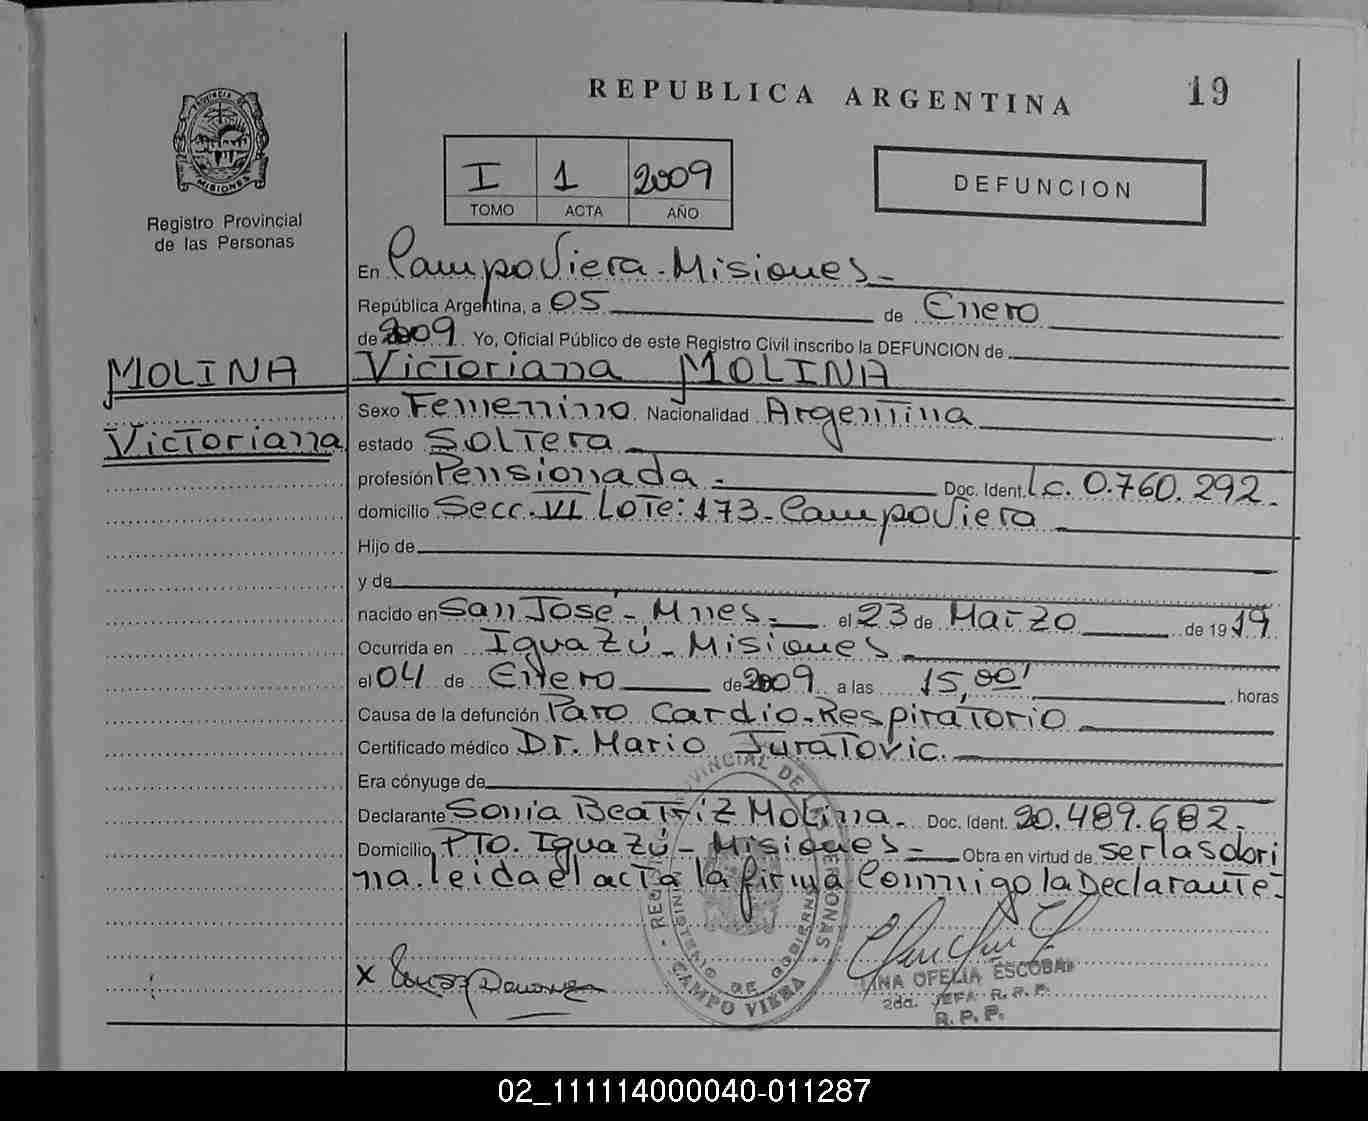 REPUBLICA ARGENTINA
19
PROVINCIA DE
MISIONES
Registro Provincial
de las Personas
I 1 2009
TOMO ACTA AÑO
DEFUNCION
En Campo Viera - Misiones -
República Argentina, a 05 de Enero
de 2009 Yo, Oficial Público de este Registro Civil inscribo la DEFUNCION de
MOLINA
Victoriana MOLINA
Sexo Femenino Nacionalidad Argentina
Victoriana
estado Soltera
profesión Pensionada - Doc. Ident. L.c. 0.760.292 -
domicilio Secc. VI Lote: 173 - Campo Viera
Hijo de
y de
nacido en San José - Mnes - el 23 de Marzo de 1919
Ocurrida en Iguazú - Misiones
el 04 de Enero de 2009 a las 15,00' horas
Causa de la defunción Paro Cardio-Respiratorio
Certificado médico Dr. Mario Juratovic.
Era cónyuge de
Declarante Sonia Beatriz Molina - Doc. Ident. 20.489.682 -
Domicilio PTO. Iguazú - Misiones - Obra en virtud de ser la sobri
na. leida el acta la firma Conmigo la Declarante -
x
INA OFELIA ESCOBAR
2da. JEFA R.R.P.
R.P.P.
CAMPO VIERA
02_111114000040-011287